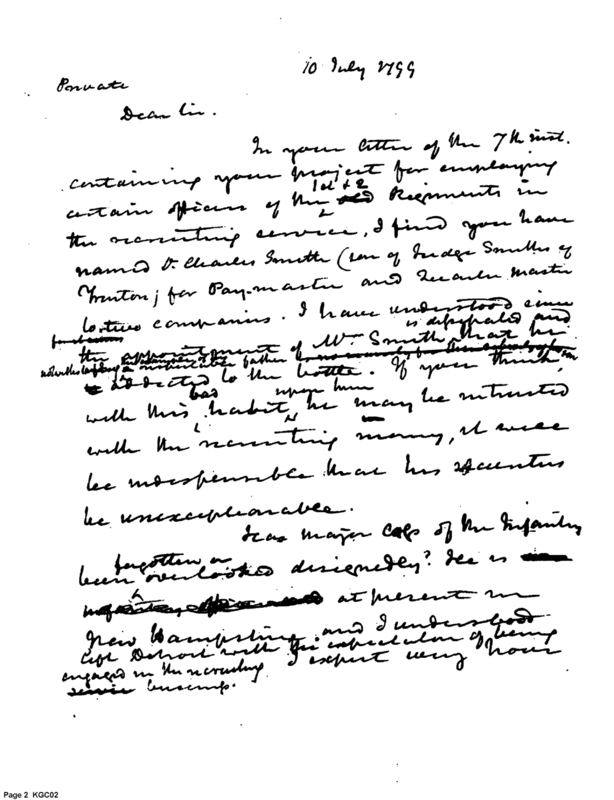 10 July 1799
Private
Dear Sir.
In your letter of the 7th inst.
containing your project for employing
1st & 2
certain officers of the old Regiments in
the recruiting service, I find you have
named Dr. Charles Smith (son of Judge Smith of
Trenton) for Pay-master and Quarter Master
to two companies. I have understood since
is dissipated and
the appointment of Mr. Smith that he
father
addicted to the bottle. If you think,
bad upon him
with this habit, he may be intrusted
with the recruiting money, it will
be indispensible that his securities
be unexceptionable.
Has Major Cass of the Infantry
forgotten or
been overlooked designedly? He is
at present in
New Hampshire and I understood
left Detroit with the expectation of being
engaged in the recruiting I expect every hour
service
Page 2 KGC02